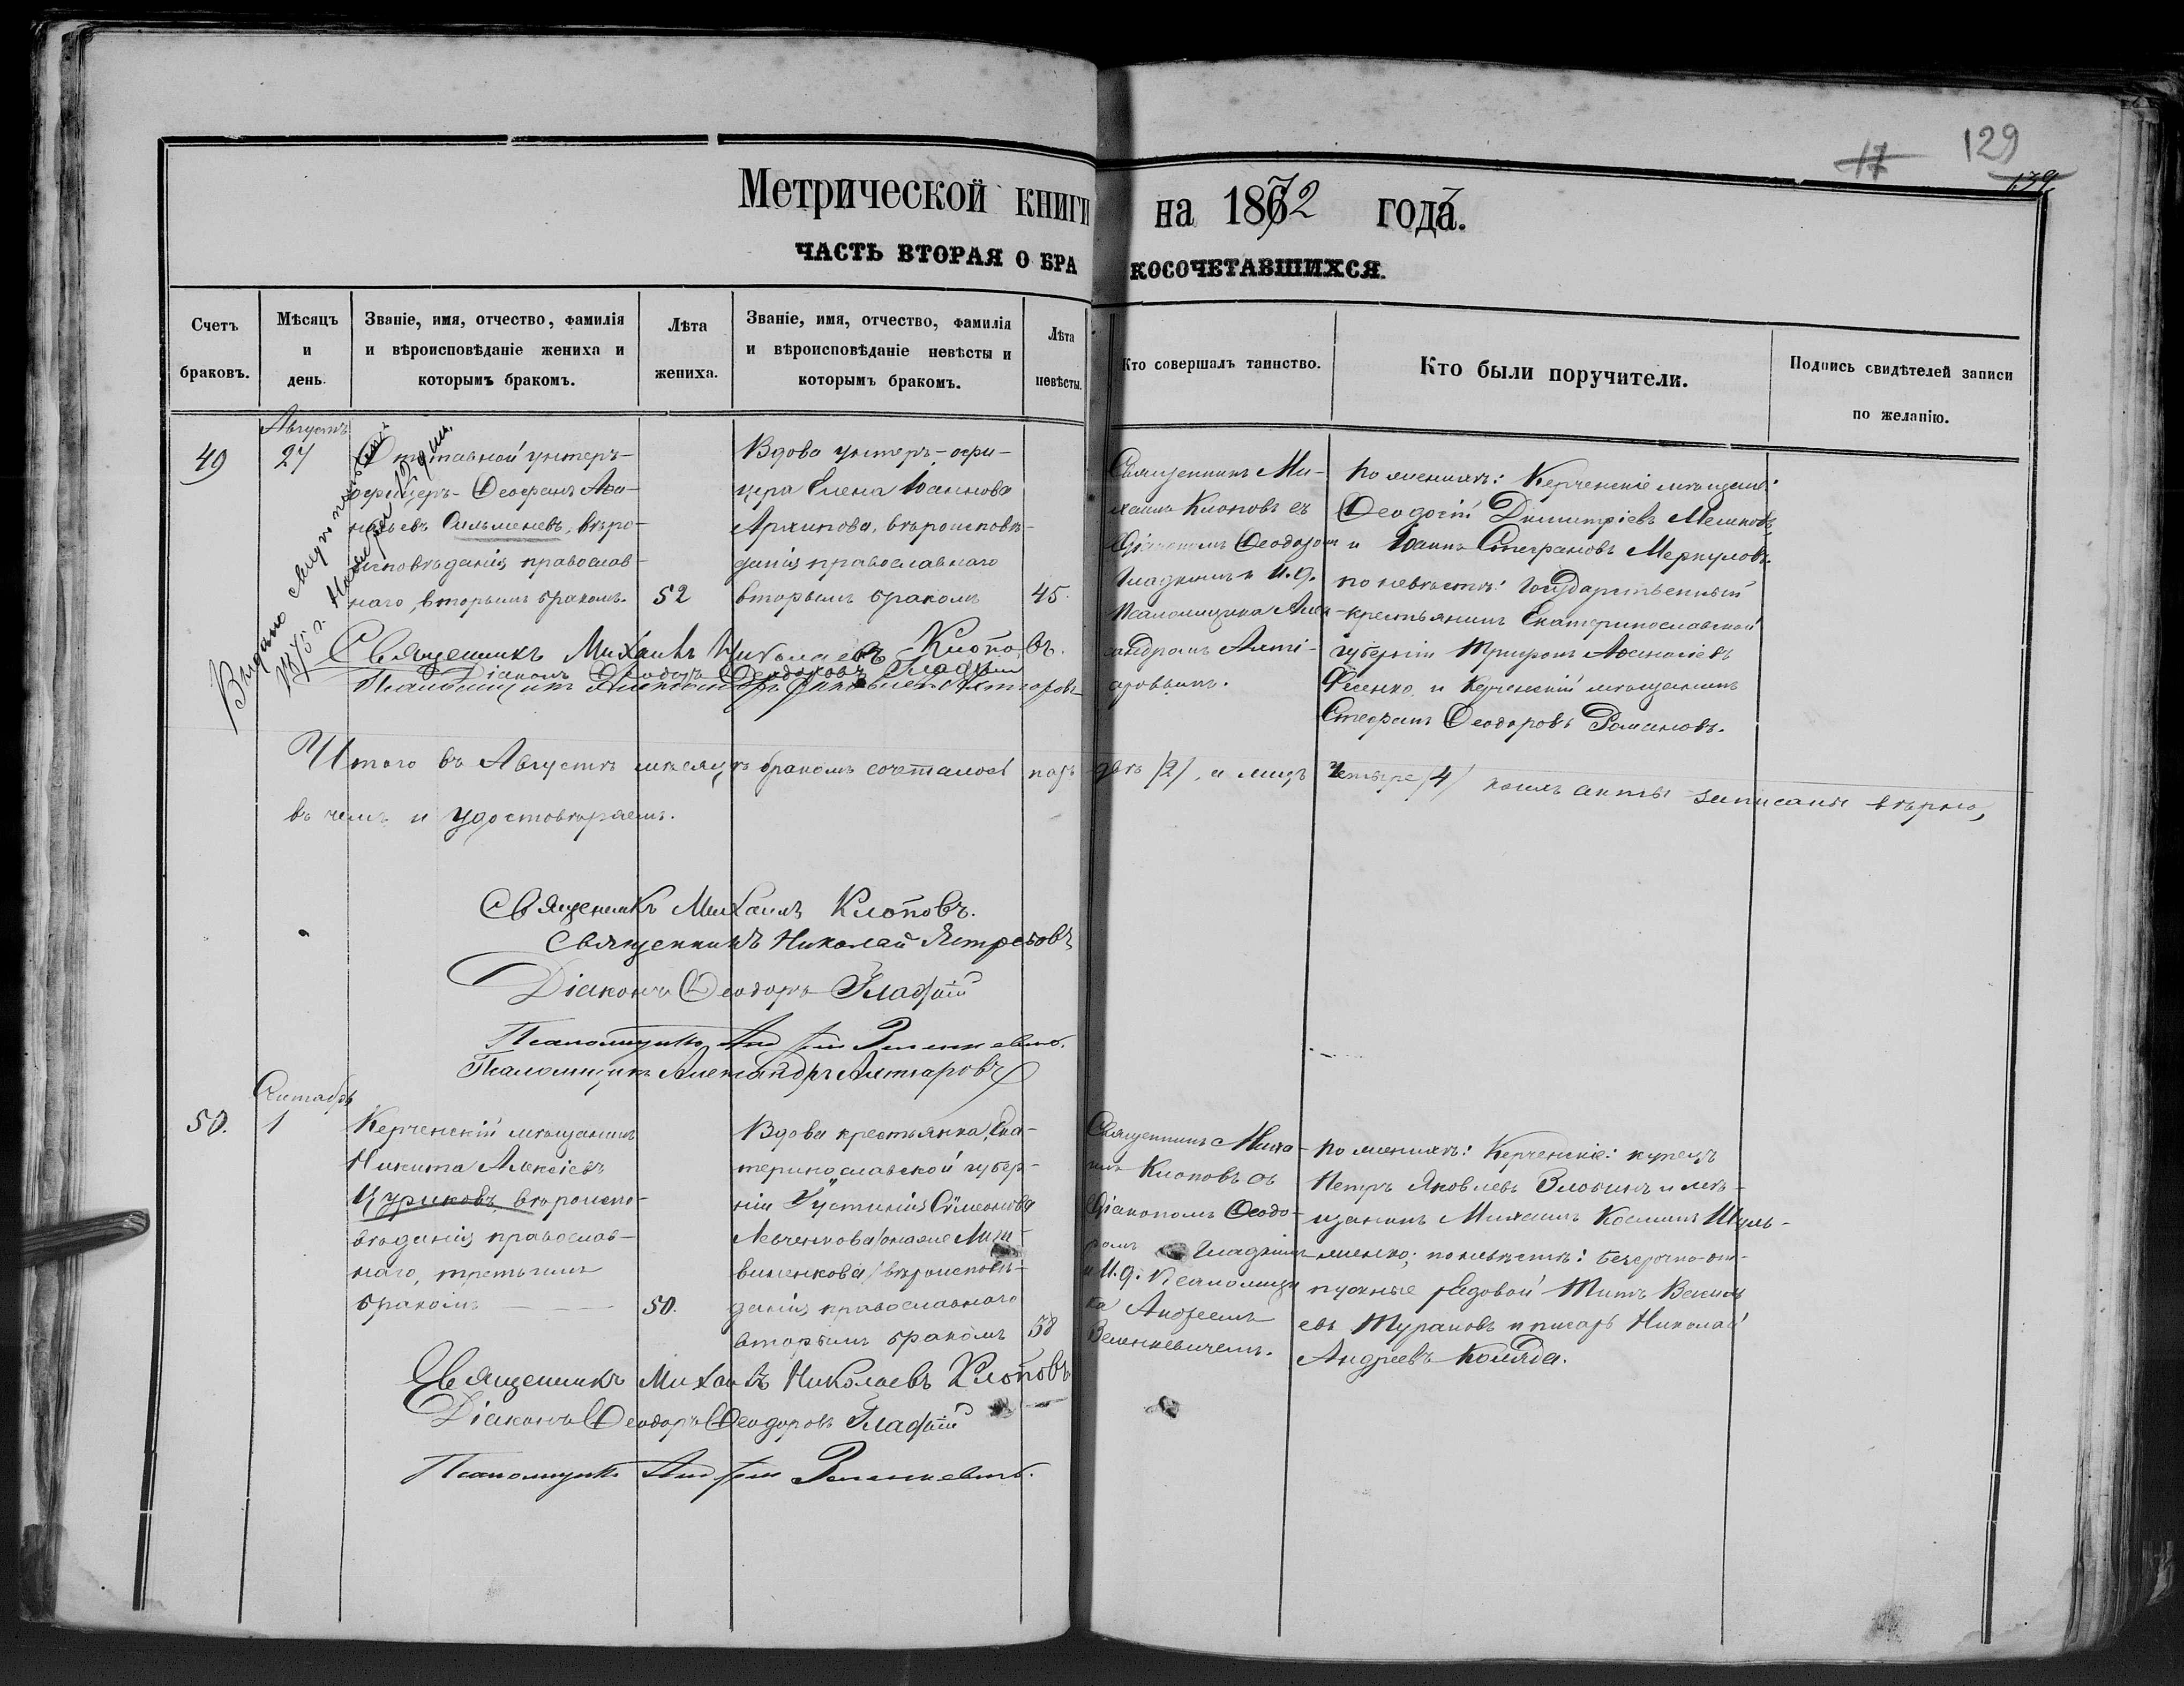 17 129
139
Метрической книги на 1872 года.
ЧАСТЬ ВТОРАЯ О БРАКОСОЧЕТАВШИХСЯ.
Счетъ
браковъ.
Мѣсяцъ
и
день.
Званіе, имя, отчество, фамилія
и вѣроисповѣданіе жениха и
которымъ бракомъ.
Лѣта
жениха.
Званіе, имя, отчество, фамилія
и вѣроисповѣданіе невѣсты и
которымъ бракомъ.
Лѣта
невѣсты.
Кто совершалъ таинство.
Кто были поручители.
Подпись свидѣтелей записи
по желанію.
49
Августъ
27
Выдано
1875 г. Ноября 19 дня.
Отставной унтеръ-
офицеръ Ѳеофанъ Аѳа-
насьевъ Сильменевъ, вѣро-
исповѣданія православ-
наго, вторымъ бракомъ.
52
Вдова унтеръ-офи-
цера Елена Іоаннова
Архипова, вѣроисповѣ-
данія православнаго
вторымъ бракомъ
45.
Священникъ Ми-
хаилъ Клоповъ съ
Діакономъ Ѳеодоромъ
Гладкимъ и И. д.
Псаломщика Алек-
сандромъ Ахтi-
аровымъ.
по женихѣ: Керченскіе мѣщане:
Ѳеодосій Димитріевъ Мешковъ,
и Іоаннъ Стефановъ Меркуловъ.
по невѣстѣ: Государственный
крестьянинъ Екатеринославской
губерніи Трифонъ Аѳанасіевъ
Фесенко и Керченскій мѣщанинъ
Стефанъ Ѳеодоровъ Романовъ.
Священникъ Михаилъ Николаевъ Клоповъ.
Діаконъ Ѳеодоръ Ѳеодоровъ Гладкій
Псаломщикъ Александръ Ахтіаровъ
Итого въ Августѣ мѣсяцѣ бракомъ сочеталось паръ двѣ /2/, а лицъ четыре /4/ коихъ акты записаны вѣрно,
въ чемъ и удостовѣряемъ.
Священникъ Михаилъ Клоповъ.
Священникъ Николай Ястребовъ
Діаконъ Ѳеодоръ Гладкій
Псаломщикъ Андрей Веленкевичъ.
Псаломщикъ Александръ Ахтіаровъ
50.
Сентябрь
1
Керченскій мѣщанинъ
Никита Алексіевъ
Цуриковъ, вѣроиспо-
вѣданія православ-
наго, третьимъ
бракомъ
50.
Вдова крестьянка, Ека-
теринославской губер-
ніи Іустинія Сѵмеонова
Левченкова /она же Лит-
виненкова/ вѣроисповѣ-
данія православнаго
вторымъ бракомъ
50
Священникъ Миха-
илъ Клоповъ съ
Діакономъ Ѳеодо-
ромъ Гладкимъ
и И. д. Псаломщи
ка Андреемъ
Веленкевичемъ.
по женихѣ: Керченскіе: купецъ
Петръ Яковлевъ Злобинъ и мѣ-
щанинъ Михаилъ Косминъ Шуль-
женко; по невѣстѣ: безсрочно-от-
пускные рядовой Титъ Васильевъ
евъ Турановъ и писарь Николай
Андреевъ Коляда.
Священникъ Михаилъ Николаевъ Клоповъ
Діаконъ Ѳеодоръ Ѳеодоровъ Гладкій
Псаломщикъ Андрей Веленкевичъ.